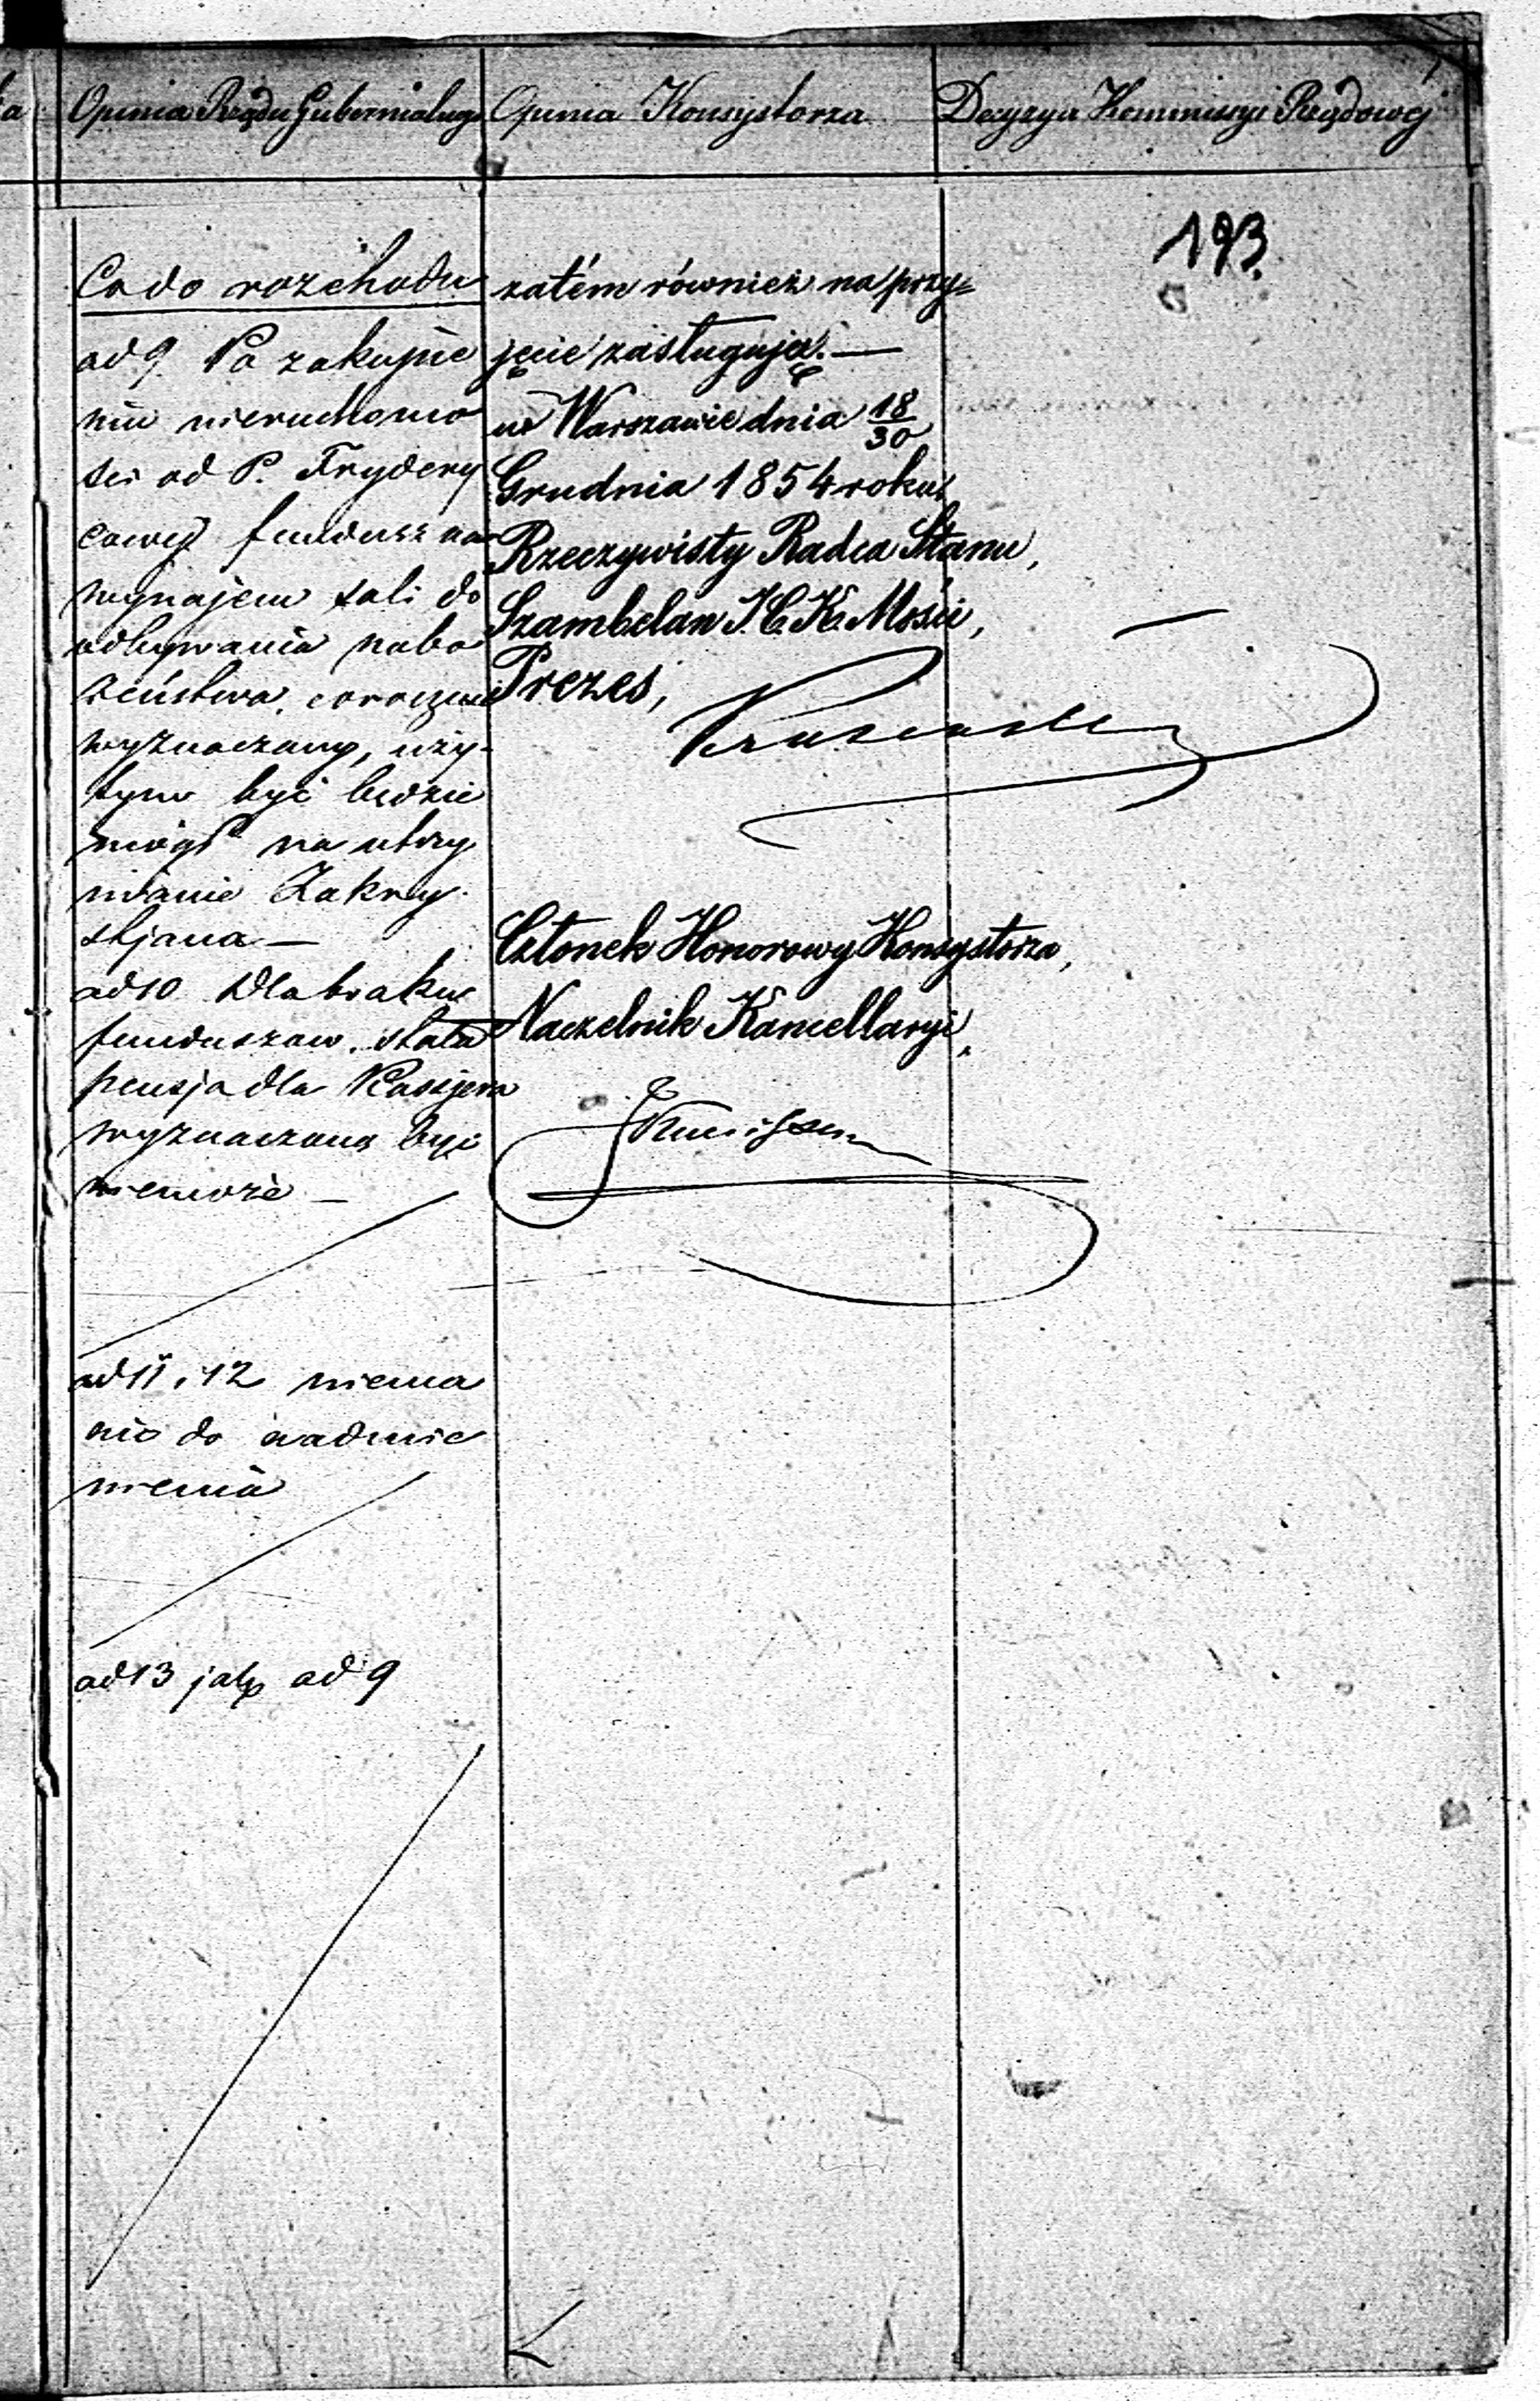 Opinia Rządu Gubernialnego
Opinia Konsystorza
Decyzya Kommissyi Rządowej
193.
Co do rozchodu
ad 9. Po zakupie
niu nieruchomo
ści od P. Frydery
cowej fundusz na
wynajem sali do
odbywania nabo
żeństwa, corocznie
wyznaczany, uży-
tym być będzie
mógł na utrzy
manie Zakry-
stjana —
ad 10 Dla braku
funduszow, stała
pensja dla Kassjera
wyznaczoną być
niemoże —
ad 11 i 12 niema
nic do nadmie
nienia
ad 13 jak ad 9
zatém również na przy=
jęcie zasługują. —
w Warszawie dnia 18/30
Grudnia 1854 roku.
Rzeczywisty Radca Stanu,
Szambelan J. C. K. Mości,
Prezes,
Członek Honorowy Konsystorza,
Naczelnik Kancellaryi,